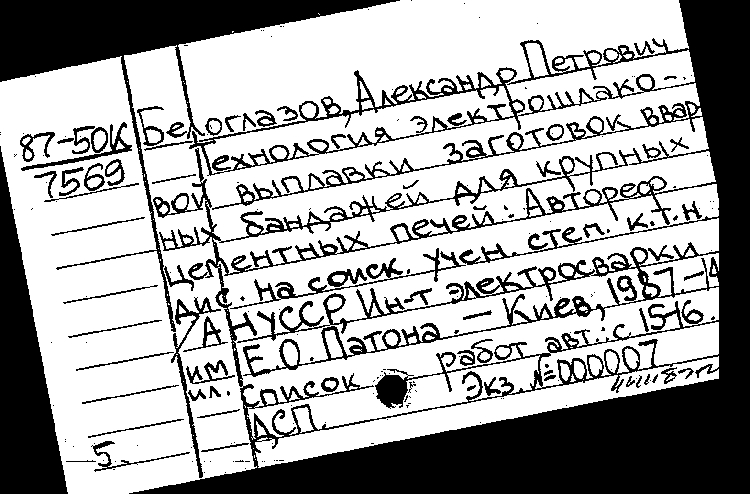 87-50К
7569
Белоглазов, Александр Петрович
Технология электрошлако-
вой выплавки заготовок ввар
ных бандажей для крупных
цементных печей: Автореф.
дис. на соиск. учен. степ. к.т.н.
/АН УССР, Ин-т электросварки
им Е.О. Патона. – Киев, 1987. –
ил. Список работ авт.: с 15-16.
ДСП. Экз. № 000007
5.